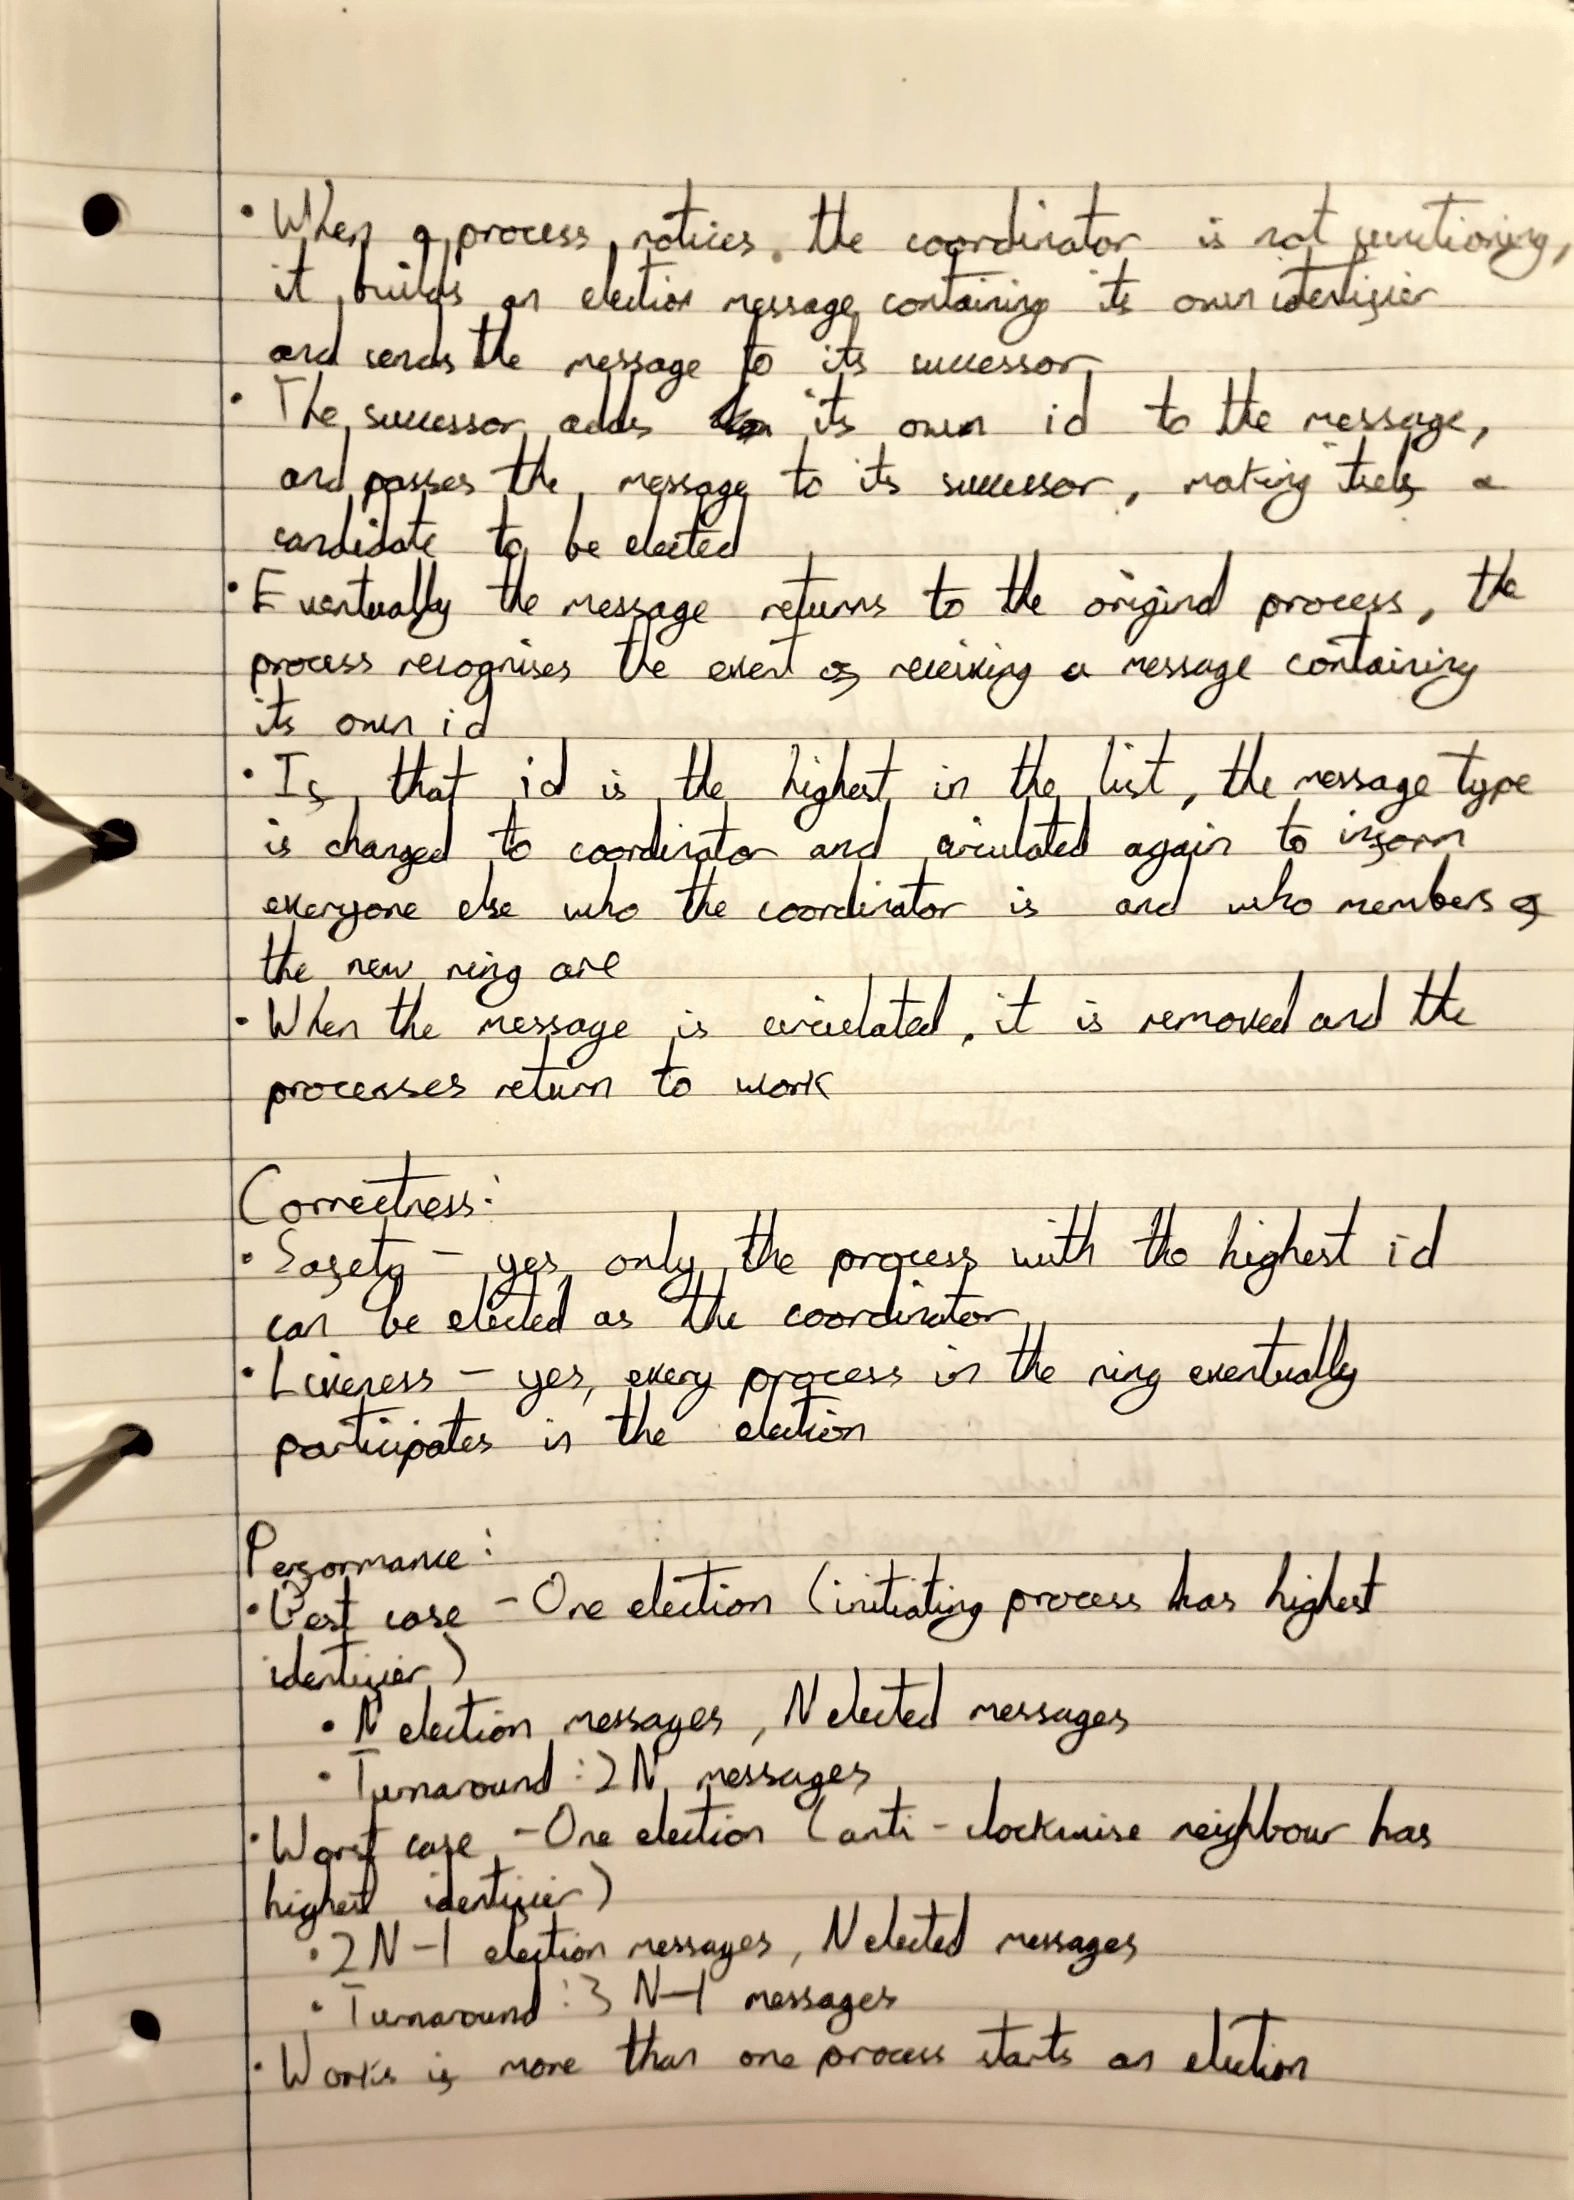 • When a process notices the coordinator is not functioning,
it builds an election message containing its own identifier
and sends the message to its successor
• The successor adds its own id to the message,
and passes the message to its successor, making itself a
candidate to be elected
• Eventually the message returns to the original process, the
process recognises the event of receiving a message containing
its own id
• If that id is the highest in the list, the message type
is changed to coordinator and circulated again to inform
everyone else who the coordinator is and who members of
the new ring are
• When the message is circulated, it is removed and the
processes return to work
Correctness:
• Safety - yes, only the process with the highest id
can be elected as the coordinator
• Liveness - yes, every process in the ring eventually
participates in the election
Performance:
• Best case - One election (initiating process has highest
identifier)
• N election messages, N elected messages
• Turnaround: 2N messages
• Worst case - One election (anti-clockwise neighbour has
highest identifier)
• 2N-1 election messages, N elected messages
• Turnaround: 3N-1 messages
• Works if more than one process starts an election